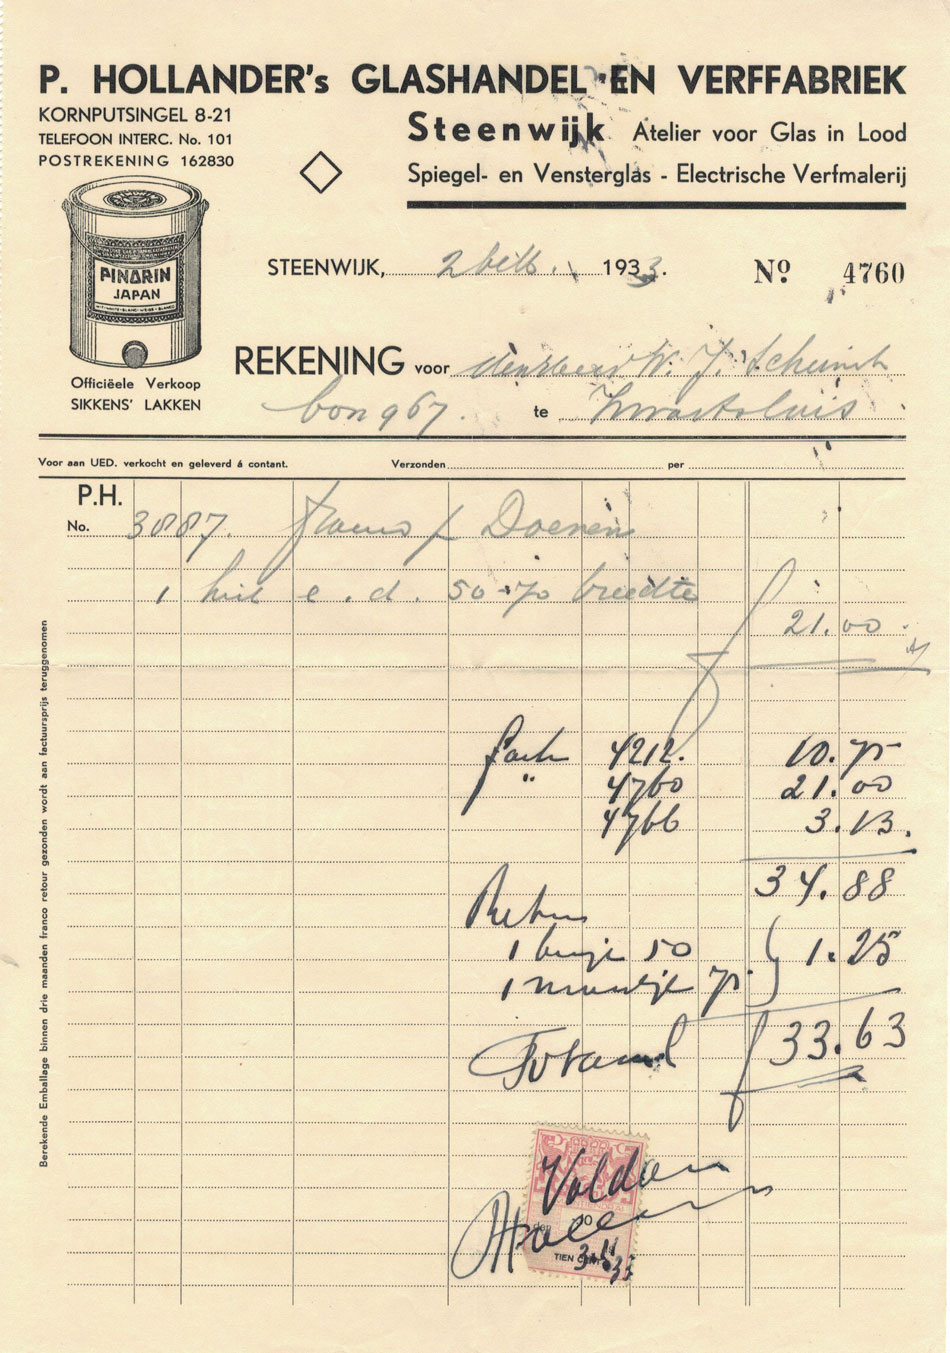 P. HOLLANDER's GLASHANDEL EN VERFFABRIEK
KORNPUTSINGEL 8-21
TELEFOON INTERC. No. 101
POSTREKENING 162830
Steenwijk Atelier voor Glas in Lood
Spiegel- en Vensterglas - Electrische Verfmalerij
PINORIN
JAPAN
Officiëele Verkoop
SIKKENS' LAKKEN
STEENWIJK, 2 1933.
Nº 4760
REKENING voor W. J.
bon 967. te Zwartsluis
Voor aan UED. verkocht en geleverd á contant. Verzonden per
P.H.
No. 3887. Doenen
1 e.d. 50-70 breedte
f 21.00
4212. 10.75
" 4760 21.00
4766 3.13.
34.88
Retour
1 busje 50
1 mandje 75 } 1.25
Totaal f 33.63
Berekende Emballage binnen drie maanden franco retour gezonden wordt aan factuursprijs teruggenomen
Voldaan
10
TIEN CENT